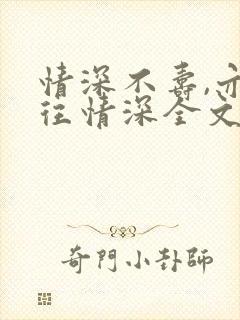 情深不寿,亦
往情深全文
奇門小卦師